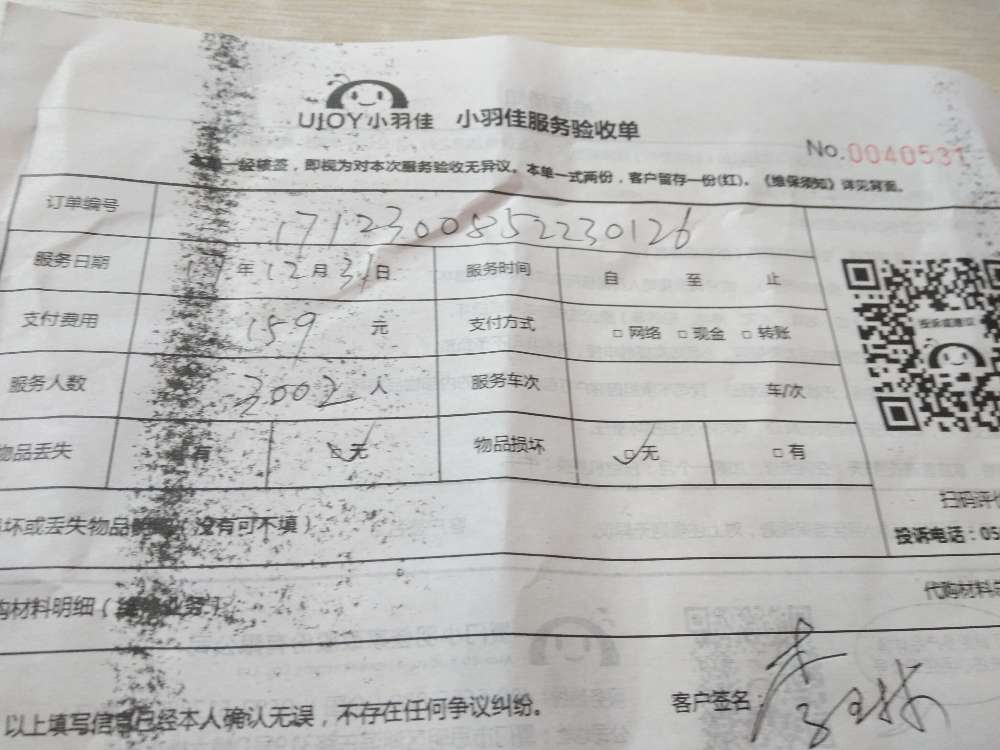 UJOY小羽佳 小羽佳服务验收单
No.0040531
本单一经核签，即视为对本次服务验收无异议。本单一式两份，客户留存一份(红)。《维保须知》详见背面。
订单编号 1712300852230126
服务日期 17年12月31日 服务时间 自 至 止
支付费用 159 元 支付方式 □网络 □现金 □转账
服务人数 3002 人 服务车次 车/次
物品丢失 有 无 物品损坏 □无 □有
坏或丢失物品 （没有可不填）
扫码评价
投诉电话：05
购材料明细（ ） 代购材料
以上填写信息已经本人确认无误，不存在任何争议纠纷。 客户签名：
投诉或建议